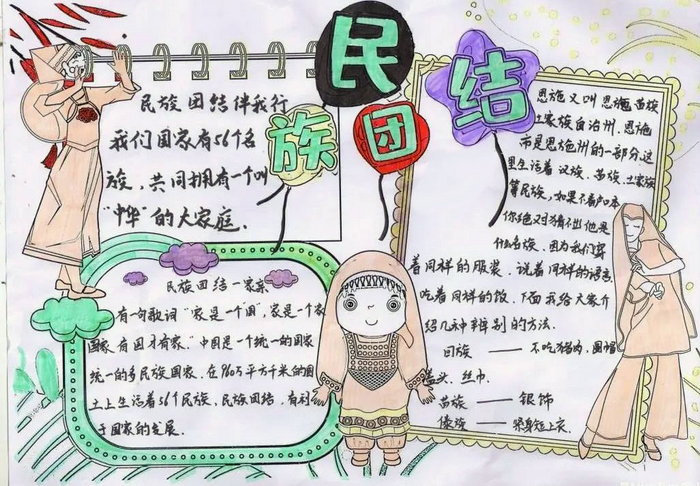 民族团结
民族团结伴我行
我们国家有56个名
族，共同拥有一个叫
“中华”的大家庭．
民族团结一家亲
有句歌词“家是一个“国”，家是一个家
国家，有国才有家．”中国是一个统一的国家
统一的多民族国家．在960万平方千米的国
土上生活着56个民族，民族团结，有利
于国家的发展．
恩施又叫恩施苗族
土家族自治州．恩施
市是恩施州的一部分．这
里生活着汉族、苗族、土家族
等民族，如果不看户口本
你绝对猜不出他是
什么名族，因为我们穿
着同样的服装、说着同样的语言．
吃着同样的饭．下面我给大家介
绍几种辩别的方法．
回族——不吃猪肉、圆帽
盖头、丝巾．
苗族——银饰
傣族——紧身短上衣．